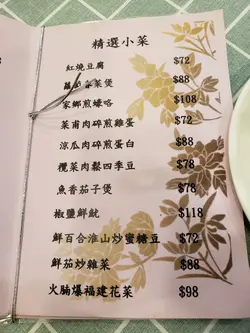 精選小菜
紅燒豆腐 $72
菜煲 $88
家鄉煎蠔咯 $108
菜甫肉碎煎雞蛋 $72
涼瓜肉碎煎蛋白 $88
欖菜肉鬆四季豆 $78
魚香茄子煲 $78
椒鹽鮮魷 $118
鮮百合淮山炒蜜糖豆 $72
鮮茄炒雜菜 $88
火腩爆福建花菜 $98